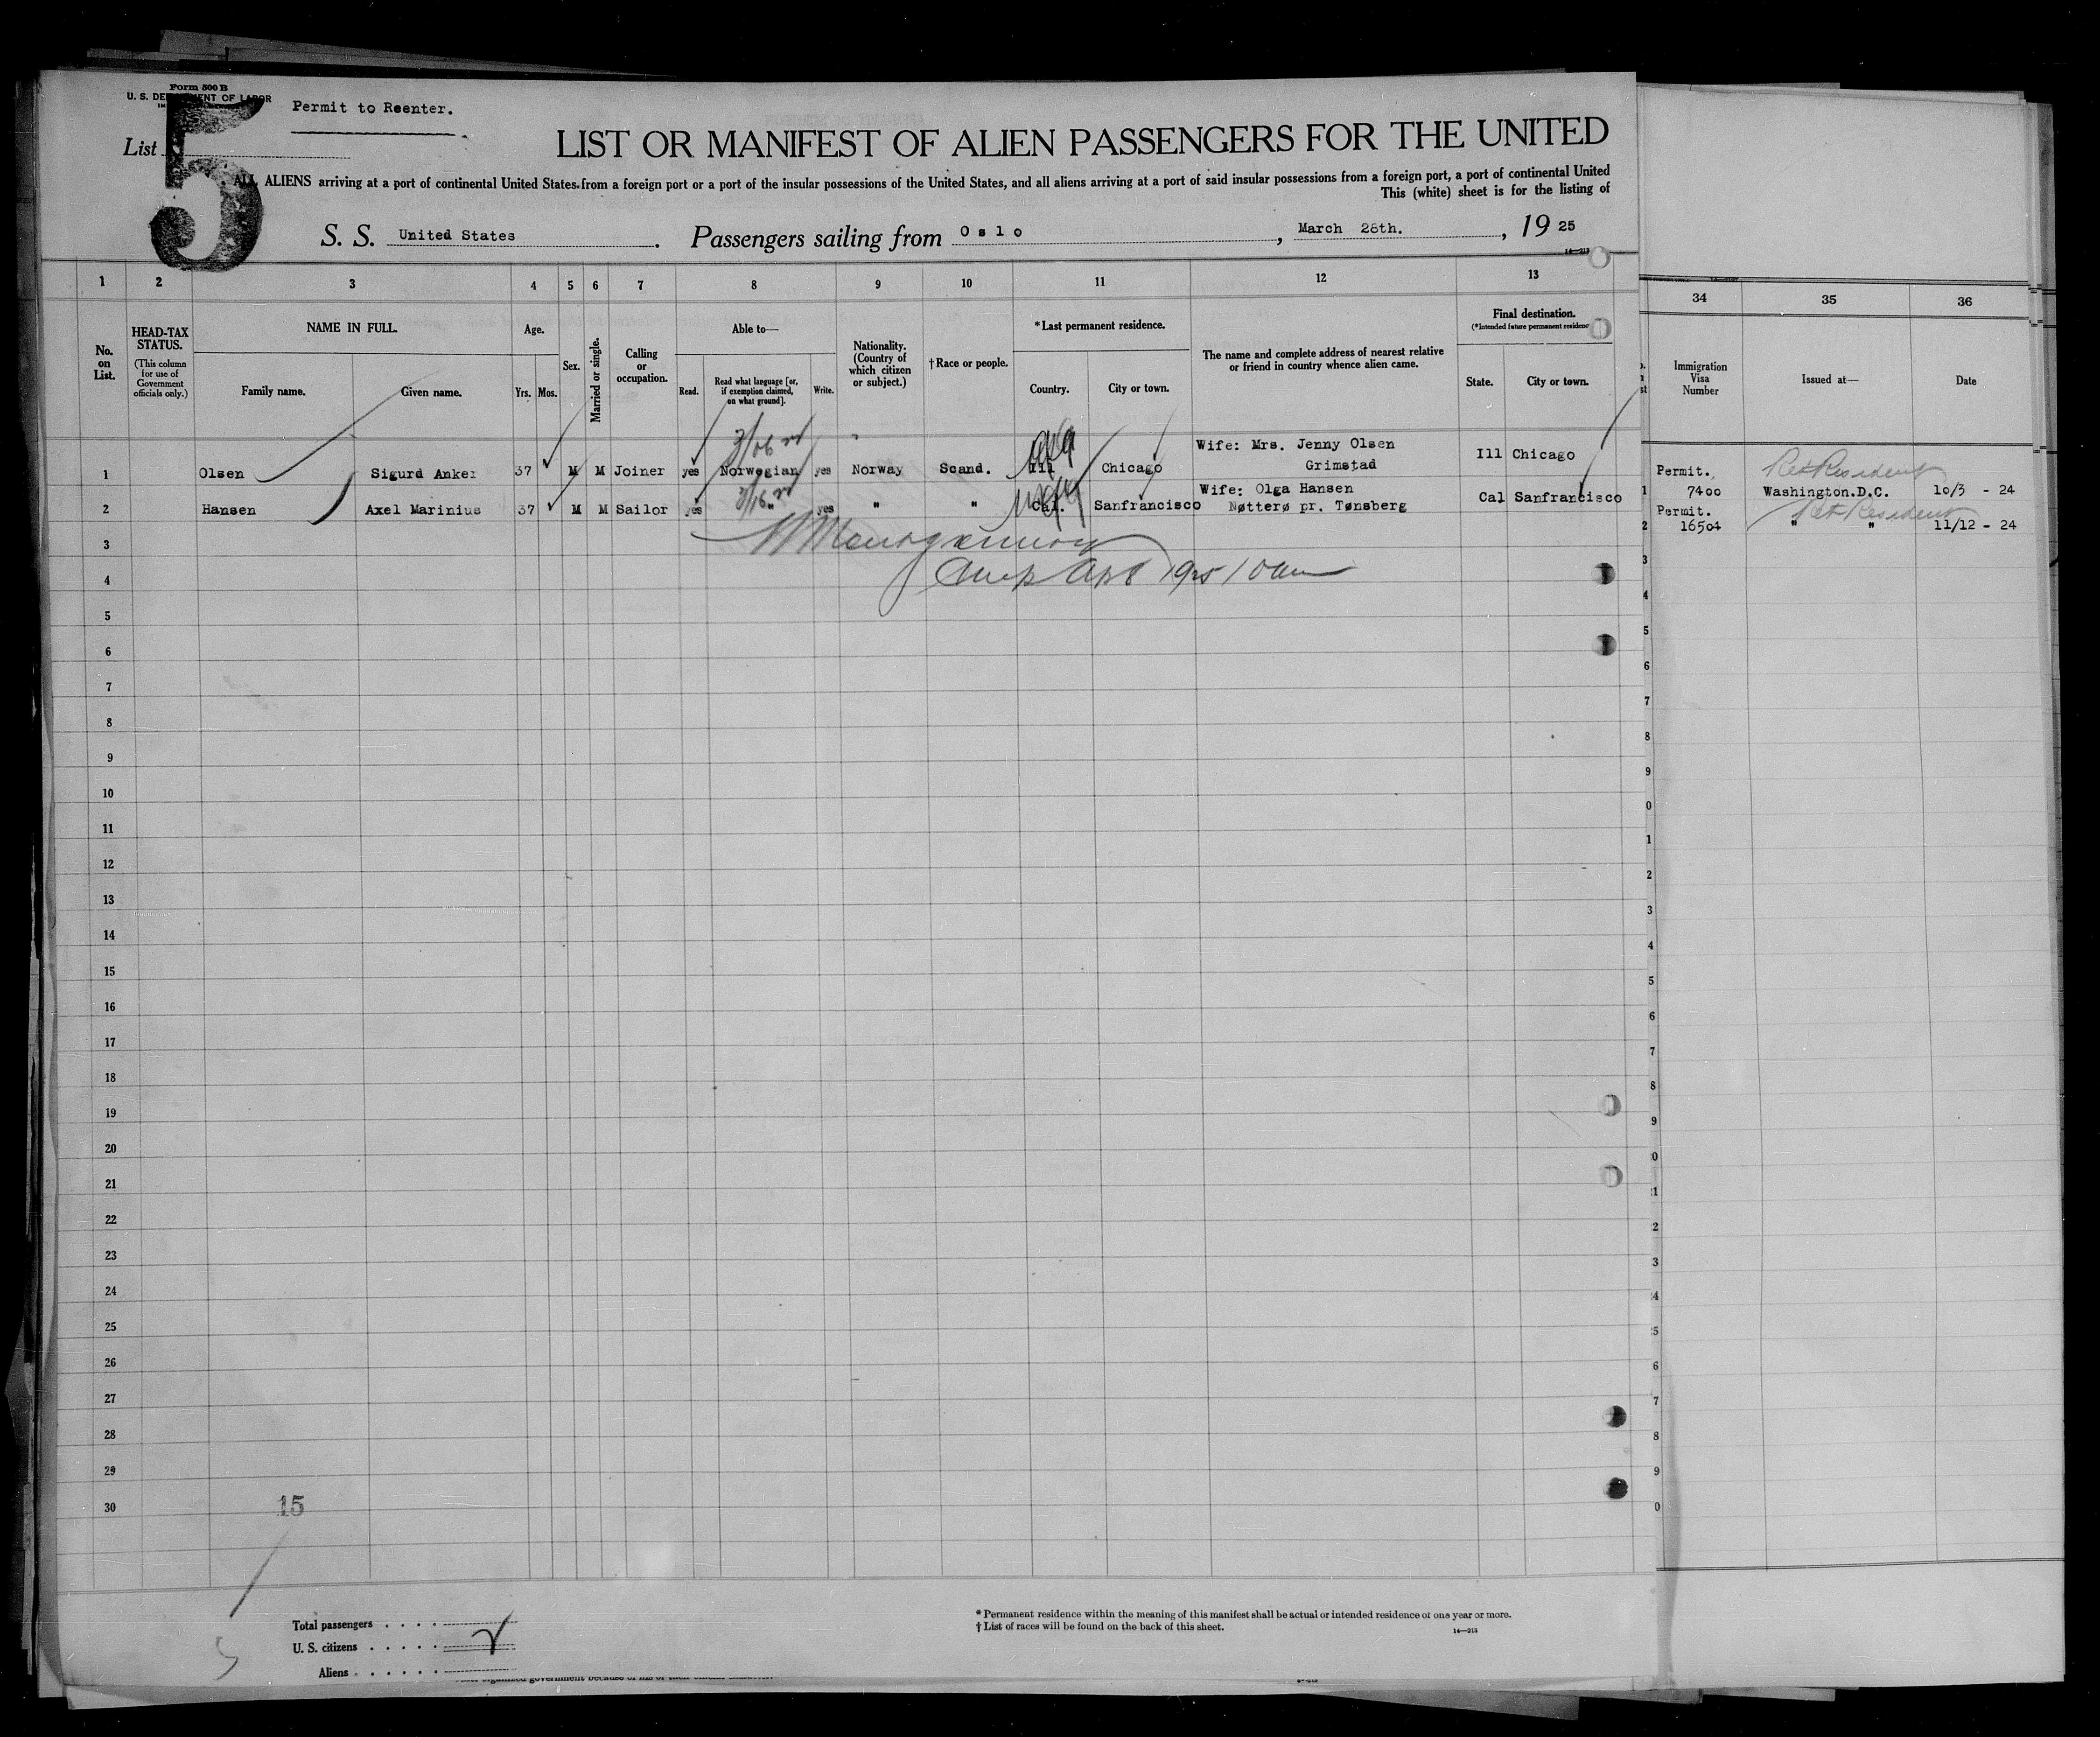 Form 500 B
U. S. DEPARTMENT OF LABOR
Permit to Reenter.
List 5
LIST OR MANIFEST OF ALIEN PASSENGERS FOR THE UNITED
ALL ALIENS arriving at a port of continental United States from a foreign port or a port of the insular possessions of the United States, and all aliens arriving at a port of said insular possessions from a foreign port, a port of continental United
This (white) sheet is for the listing of
S. S. United States. Passengers sailing from Oslo, March 28th., 1925
14—213
1 2 3 4 5 6 7 8 9 10 11 12 13 34 35 36
No. on List.
HEAD-TAX STATUS.
(This column for use of Government officials only.)
NAME IN FULL.
Family name. Given name.
Age.
Yrs. Mos.
Sex.
Married or single.
Calling or occupation.
Able to—
Read. Read what language [or, if exemption claimed, on what ground]. Write.
Nationality. (Country of which citizen or subject.)
†Race or people.
*Last permanent residence.
Country. City or town.
The name and complete address of nearest relative or friend in country whence alien came.
Final destination.
(*Intended future permanent residence
State. City or town.
Immigration Visa Number
Issued at—
Date
1 Olsen Sigurd Anker 37 M M Joiner yes Norwegian yes Norway Scand. Ill Chicago Wife: Mrs. Jenny Olsen Grimstad Ill Chicago
Permit. 7400 Ret Resident Washington.D.C. 10/3 - 24
2 Hansen Axel Marinius 37 M M Sailor yes " yes " " Cal. Sanfrancisco Wife: Olga Hansen Nøtterø pr. Tønsberg Cal Sanfrancisco
Permit. 16504 Ret Resident " " 11/12 - 24
3
4
5
6
7
8
9
10
11
12
13
14
15
16
17
18
19
20
21
22
23
24
25
26
27
28
29
30
15
Total passengers . . . .
U. S. citizens . . . . .
Aliens . . . . . .
* Permanent residence within the meaning of this manifest shall be actual or intended residence of one year or more.
† List of races will be found on the back of this sheet.
14—213